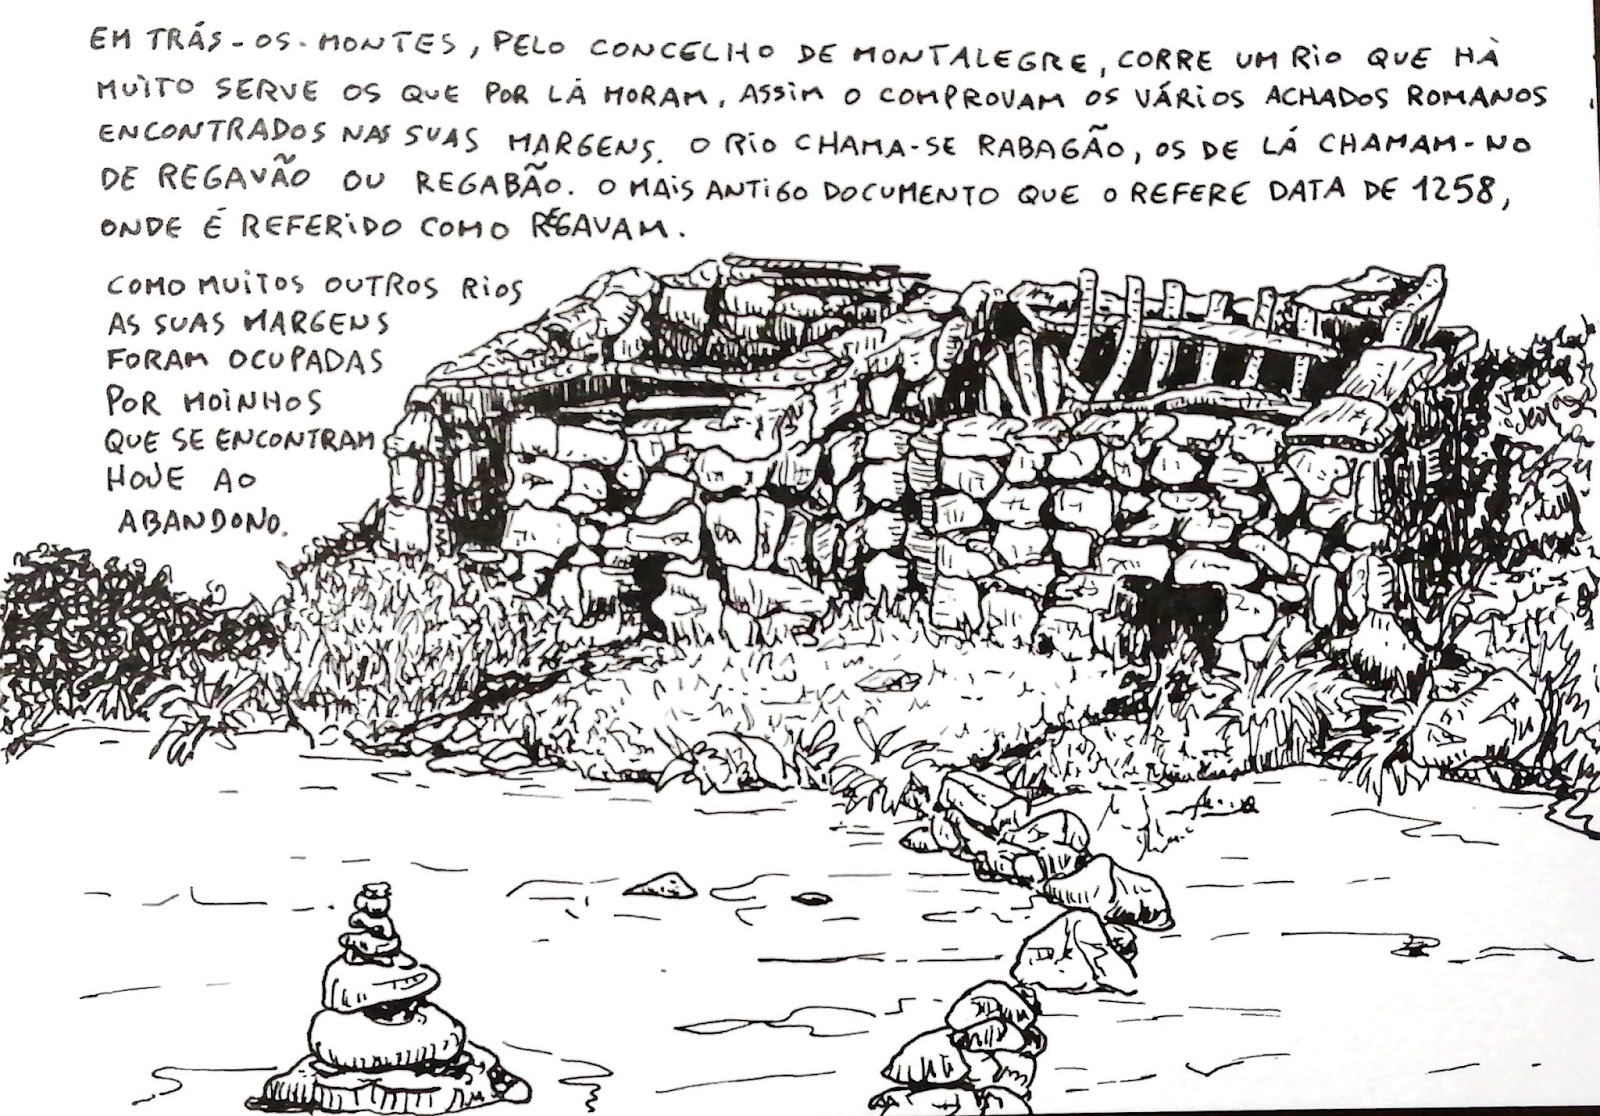 EM TRÁS-OS-MONTES, PELO CONCELHO DE MONTALEGRE, CORRE UM RIO QUE HÀ
MUITO SERVE OS QUE POR LÁ MORAM, ASSIM O COMPROVAM OS VÁRIOS ACHADOS ROMANOS
ENCONTRADOS NAS SUAS MARGENS. O RIO CHAMA-SE RABAGÃO, OS DE LÁ CHAMAM-NO
DE REGAVÃO OU REGABÃO. O MAIS ANTIGO DOCUMENTO QUE O REFERE DATA DE 1258,
ONDE É REFERIDO COMO REGAVAM.
COMO MUITOS OUTROS RIOS
AS SUAS MARGENS
FORAM OCUPADAS
POR MOINHOS
QUE SE ENCONTRAM
HOJE AO
ABANDONO.